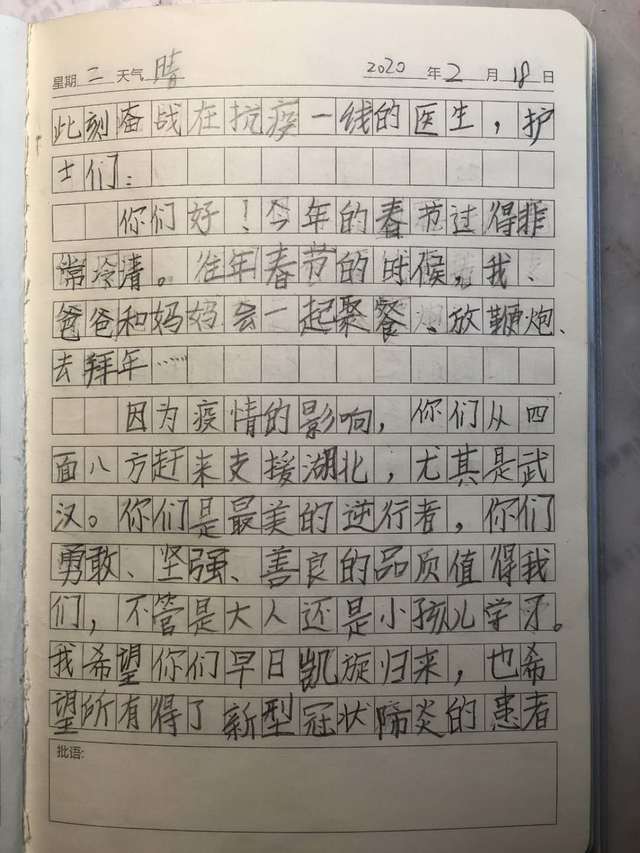 星期二 天气晴 2020年2月18日
此刻奋战在抗疫一线的医生，护
士们：
你们好！今年的春节过得非
常冷清。往年春节的时候，我、
爸爸和妈妈会一起聚餐、放鞭炮、
去拜年……
因为疫情的影响，你们从四
面八方赶来支援湖北，尤其是武
汉。你们是最美的逆行者，你们
勇敢、坚强、善良的品质值得我
们，不管是大人还是小孩儿学习。
我希望你们早日凯旋归来，也希
望所有得了新型冠状肺炎的患者
批语: